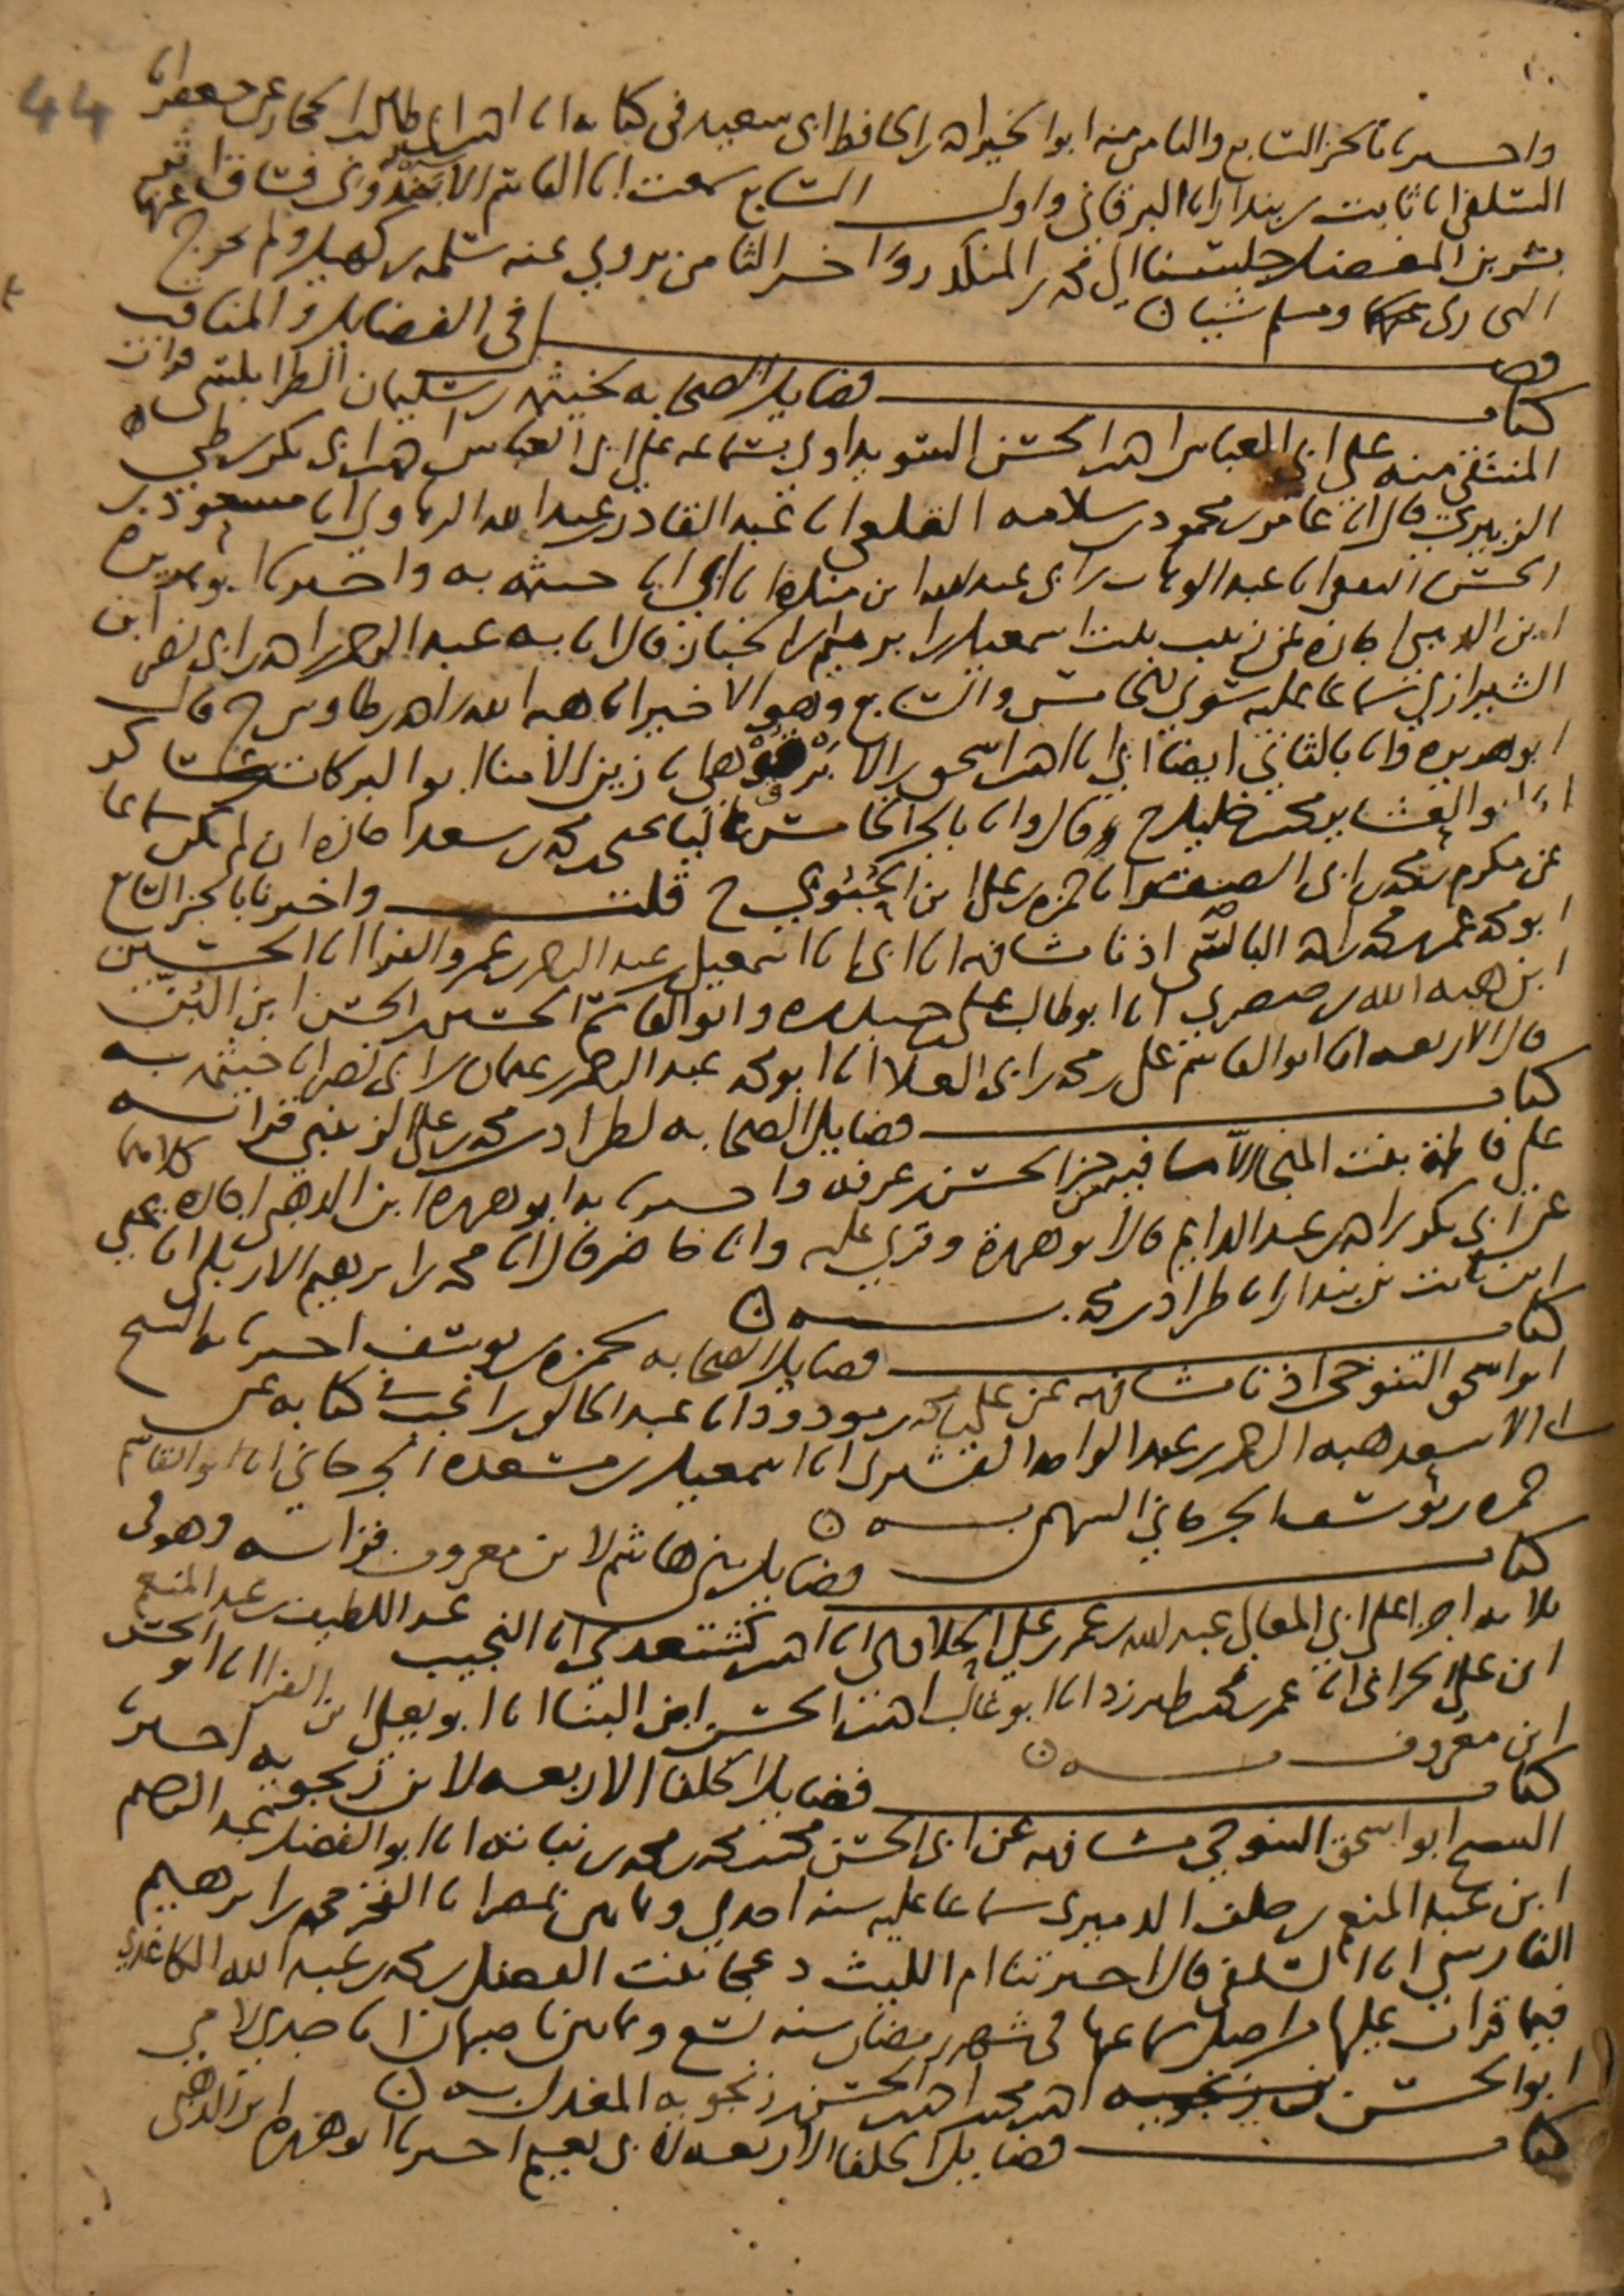 44
واخبرنا بالجزء السابع والثامن منه ابو الخير احمد بن الحافظ ابي سعيد في كتابه انا احمد بن ابي طالب الحجار عن جعفر انا
السلفي انا ثابت بن بندار انا البرقاني واول السابع سمعت ابا القاسم الابندوني
بشر بن المفضل جلسنا الى محمد بن المنكدر واخر الثامن يروي عنه سلمة بن كهيل ولم يخرج
البخاري عنهما ومسلم شيا
فصل في الفضايل والمناقب
كتاب فضايل الصحابه لخيثمه بن سليمان الطرابلسي قرات
المنتقى منه على ابي العباس احمد بن الحسن السويداوي بسماعه على ابي العباس احمد بن ابي بكر بن طي
الزبيري قال انا عامر بن محمود بن سلامه القلعي انا عبد القادر بن عبد الله الرهاوي انا مسعود بن
الحسن الثقفي انا عبد الوهاب بن ابي عبد الله ابن منده انا ابي انا خيثمه به واخبرنا ابو هريره
ابن الذهبي اجازه عن زينب بنت اسمعيل بن ابراهيم بن الخباز قالا انا به عبد الرحمن بن احمد بن ابي نصر ابن
الشيرازي سماعا عليه سوى الخامس والسابع وهو الاخير انا هبه الله بن احمد بن طاوس ح قال
ابو هريره وانا بالثاني ايضا ابي انا احمد بن اسحق بن الابرقوهي انا زين الامنا ابو البركات
خليل ح وقالوا انا بالجزء الخامس يحيى بن محمد بن سعد اجازه ان لم يكن سماعا
عن مكرم بن محمد بن ابي الصقر انا حمزه بن علي ابن الحبوبي ح قلت واخبرنا بالجزء السابع
ابو محمد عمر بن محمد بن احمد البالسي اذنا مشافهه انا ابي انا اسمعيل بن عبد الرحمن بن عمرو الفرا انا الحسين
ابن هبه الله بن صصري انا ابو طالب علي بن حيدره وابو القاسم الحسين بن الحسن ابن البن
قال الاربعه انا ابو القاسم علي بن محمد بن ابي العلا انا ابو محمد عبد الرحمن بن عثمان بن ابي نصر انا خيثمه به
كتاب فضايل الصحابه لطراد بن محمد بن علي الزينبي قراته
على فاطمه بنت المنجا الا ما فيه من جزء الحسن بن عرفه واخبرنا به ابو هريره ابن الذهبي اجازه كلاهما
عن ابي بكر بن احمد بن عبد الدايم قال ابو هريره وقري عليه وانا حاضر قال انا محمد بن ابرهيم الاربلي انا يحيى
ابن ثابت بن بندار انا طراد بن محمد به
كتاب فضايل الصحابه لحمزه بن يوسف اخبرنا به الشيخ
ابو اسحق التنوخي اذنا مشافهه عن علي بن محمد بن مودود انا عبد الخالق بن انجب في كتابه عن
ابي الاسعد هبه الرحمن بن عبد الواحد القشيري انا اسمعيل بن مسعده الجرجاني انا ابو القاسم
حمزه بن يوسف الجرجاني السهمي به
كتاب فضايل بني هاشم لابن معروف قراته وهو في
ثلاثه اجزا على ابي المعالي عبد الله بن عمر بن علي الحلاوي انا احمد بن كشتغدي انا النجيب عبد اللطيف بن عبد المنعم
ابن علي الحراني انا عمر بن محمد بن طبرزد انا ابو غالب احمد بن الحسن ابن البنا انا ابو يعلى ابن الفرا انا ابو الحسن
ابن معروف به
كتاب فضايل الخلفا الاربعه لابن زنجويه اخبرنا به
الشيخ ابو اسحق التنوخي مشافهه عن ابي الحسن محمد بن محمد بن محمد بن نباته انا ابو الفضل عبد الرحيم
ابن عبد المنعم بن خلف الدميري سماعا عليه سنه احدى وثمانين بمصر انا الفخر محمد بن ابرهيم
الفارسي انا السلفي قال اخبرتنا ام الليث دعجا بنت الفضل بن محمد بن عبد الله الكاغدي
فيما قرات عليها من اصل سماعها في شهر رمضان سنه تسع وثمانين باصبهان انا جدي لامي
ابو الحسن احمد بن محمد بن احمد بن الحسن بن زنجويه المعدل به
كتاب فضايل الخلفا الاربعه لابي نعيم اخبرنا ابو هريره ابن الذهبي